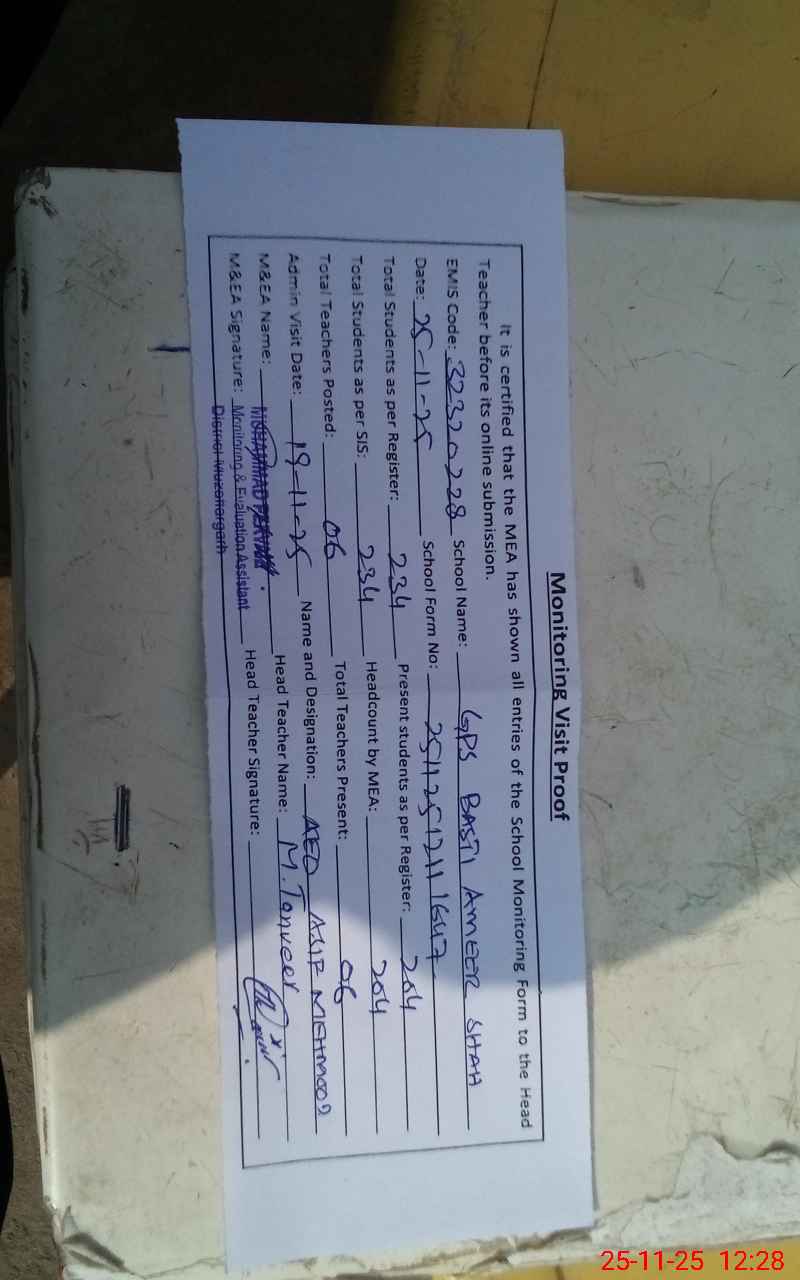 Monitoring Visit Proof
It is certified that the MEA has shown all entries of the School Monitoring Form to the Head
Teacher before its online submission.
EMIS Code: 32320228 School Name: GPS BASTI AMEER SHAH
Date: 25-11-25 School Form No: 25112512111647
Total Students as per Register: 234 Present students as per Register: 204
Total Students as per SIS: 234 Headcount by MEA: 204
Total Teachers Posted: 06 Total Teachers Present: 06
Admin Visit Date: 19-11-25 Name and Designation: AEO ASIF MEHMOOD
M&EA Name: MUHAMMAD Head Teacher Name: M. Tanveer
M&EA Signature: Monitoring & Evaluation Assistant Head Teacher Signature:
District Muzaffargarh
25-11-25 12:28